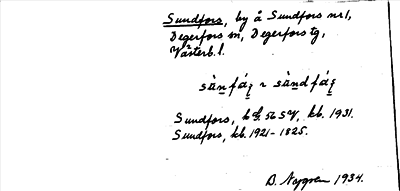 Sundfors, by å Sundfors nr 1,
Degerfors sn, Degerfors tg,
Västerb. l.
Sundfors, 56 SV, kb. 1931.
Sundfors, kb. 1921-1825.
B. Nygren 1934.